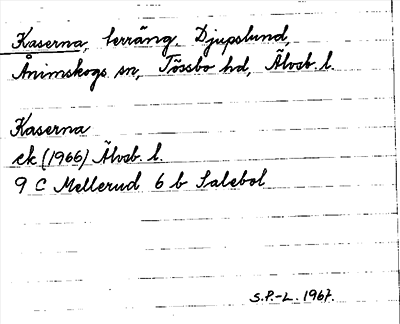 Kaserna, terräng, Djupslund,
Ånimskogs sn, Tössbo hd, Älvsb. l.
Kaserna
ek (1966) Älvsb. l.
9 C Mellerud 6 b Salebol
S.P.-L. 1967.